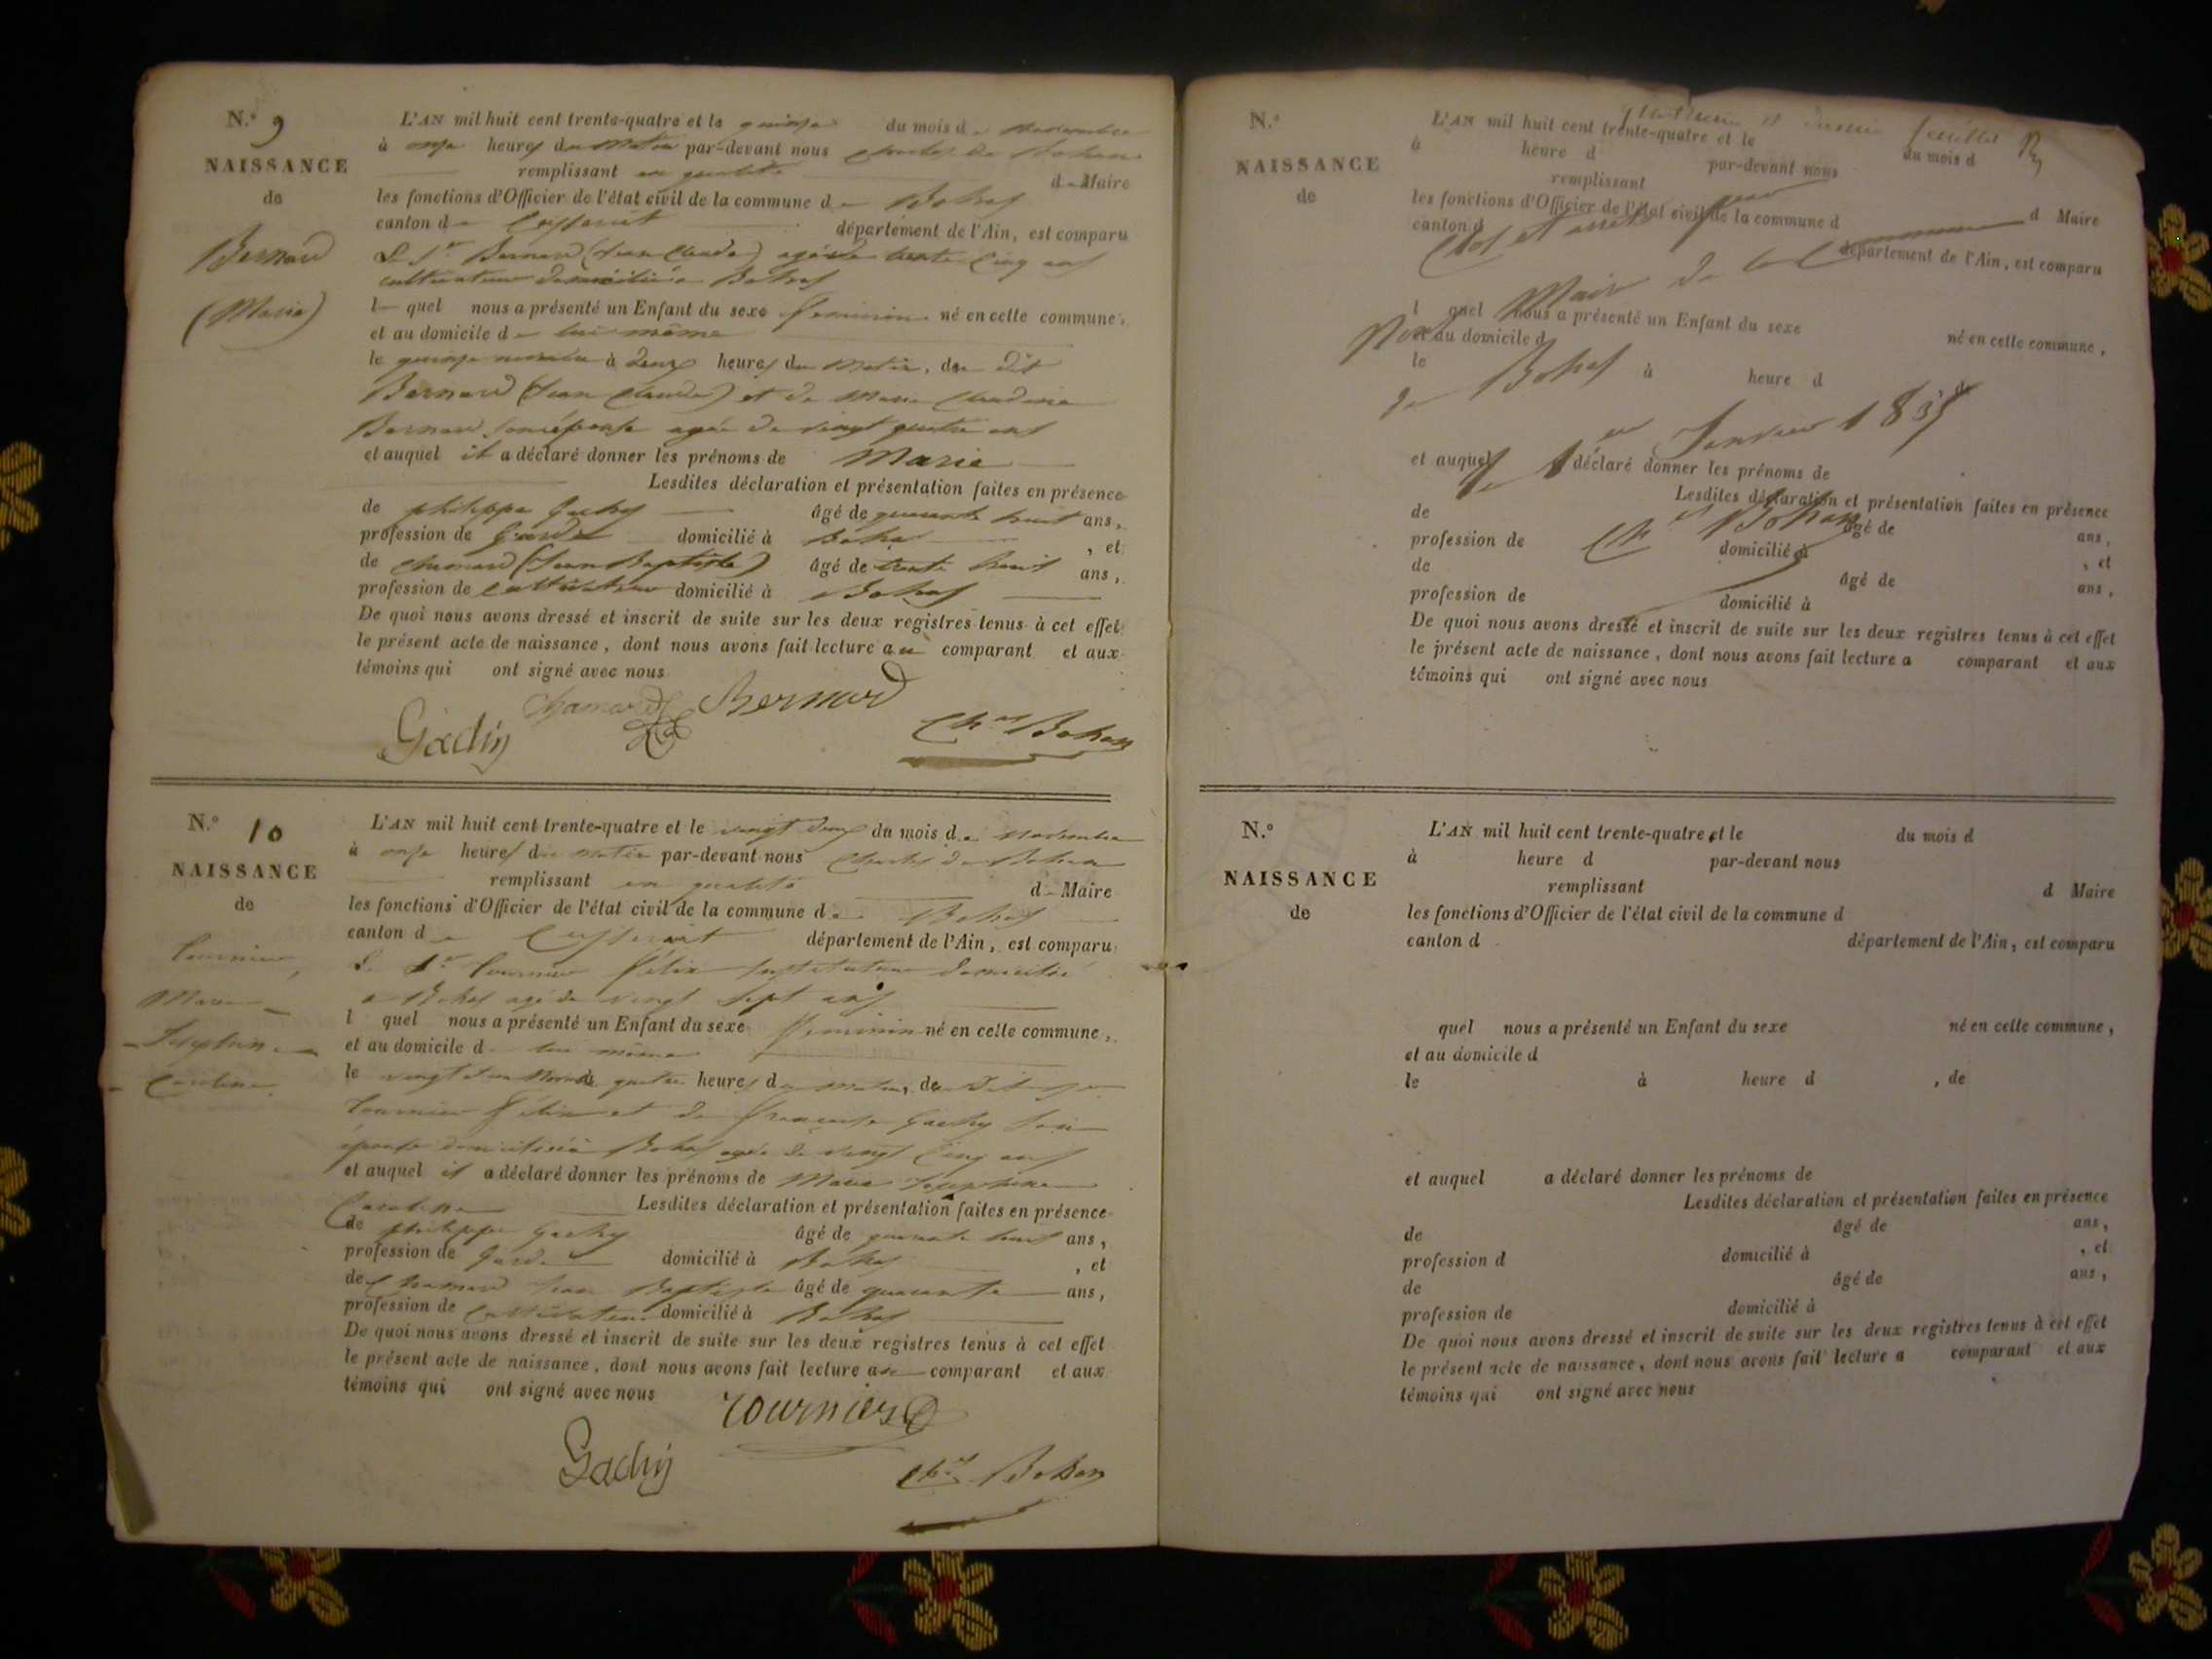 N.º 9
NAISSANCE
de
Bernard
(Marie)
L'AN mil huit cent trente-quatre et le quinze du mois de novembre
à onze heures du matin par-devant nous Charles de Bohan
remplissant en qualité de Maire
les fonctions d'Officier de l'état civil de la commune de Bohas
canton de Ceyseriat département de l'Ain, est comparu
Le Sr Bernard (Jean Claude) agé de trente cinq ans
cultivateur domicilié a Bohas
le quel nous a présenté un Enfant du sexe feminin né en cette commune,
et au domicile de lui même
le quinze novembre à deux heures du matin, du dit
Bernard (Jean Claude) et de Marie Claudine
Bernard son épouse agée de vingt quatre ans
et auquel il a déclaré donner les prénoms de Marie
Lesdites déclaration et présentation faites en présence
de philippe Gachy âgé de quarante huit ans,
profession de Garde domicilié à Bohas , et
de Chamard (Jean Baptiste) âgé de trente huit ans,
profession de Cultivateur domicilié à Bohas
De quoi nous avons dressé et inscrit de suite sur les deux registres tenus à cet effet
le présent acte de naissance, dont nous avons fait lecture au comparant et aux
témoins qui ont signé avec nous
Chamard Bernard
Gachy Chles Bohan
N.º 10
NAISSANCE
de
Tournier
Marie
Josephine
Caroline
L'AN mil huit cent trente-quatre et le vingt deux du mois de novembre
à onze heures du matin par-devant nous Charles de Bohan
remplissant en qualité de Maire
les fonctions d'Officier de l'état civil de la commune de Bohas
canton de Ceyseriat département de l'Ain, est comparu
Le Sr Tournier Félix instituteur domicilié
a Bohas agé de vingt sept ans
l quel nous a présenté un Enfant du sexe feminin né en cette commune,
et au domicile de lui même
le vingt quatre heures du matin, du dit
Tournier Félix et de françoise Gachy son
épouse domiciliée a Bohas agée de vingt cinq ans
et auquel il a déclaré donner les prénoms de Marie Josephine
Caroline Lesdites déclaration et présentation faites en présence
de philippe Gachy âgé de quarante huit ans,
profession de Garde domicilié à Bohas , et
de Chamard Jean Baptiste âgé de quarante ans,
profession de Cultivateur domicilié à Bohas
De quoi nous avons dressé et inscrit de suite sur les deux registres tenus à cet effet
le présent acte de naissance, dont nous avons fait lecture au comparant et aux
témoins qui ont signé avec nous
Tournier
Gachy Chles Bohan
et dernier feuillet
N.º
NAISSANCE
de
L'AN mil huit cent trente-quatre et le du mois d
à heure d par-devant nous
remplissant d Maire
les fonctions d'Officier de l'état civil de la commune d
canton d département de l'Ain, est comparu
Clos et arreté par
Maire de la Commune
l quel nous a présenté un Enfant du sexe né en cette commune,
et au domicile d
le à heure d
de Bohas
1er Janvier 1835
et auquel a déclaré donner les prénoms de
Lesdites déclaration et présentation faites en présence
de âgé de ans,
Chles Bohan
profession de domicilié à , et
de âgé de ans,
profession de domicilié à
De quoi nous avons dressé et inscrit de suite sur les deux registres tenus à cet effet
le présent acte de naissance, dont nous avons fait lecture a comparant et aux
témoins qui ont signé avec nous
N.º
NAISSANCE
de
L'AN mil huit cent trente-quatre et le du mois d
à heure d par-devant nous
remplissant d Maire
les fonctions d'Officier de l'état civil de la commune d
canton d département de l'Ain, est comparu
quel nous a présenté un Enfant du sexe né en cette commune,
et au domicile d
le à heure d , de
et auquel a déclaré donner les prénoms de
Lesdites déclaration et présentation faites en présence
de âgé de ans,
profession d domicilié à , et
de âgé de ans,
profession de domicilié à
De quoi nous avons dressé et inscrit de suite sur les deux registres tenus à cet effet
le présent acte de naissance, dont nous avons fait lecture a comparant et aux
témoins qui ont signé avec nous